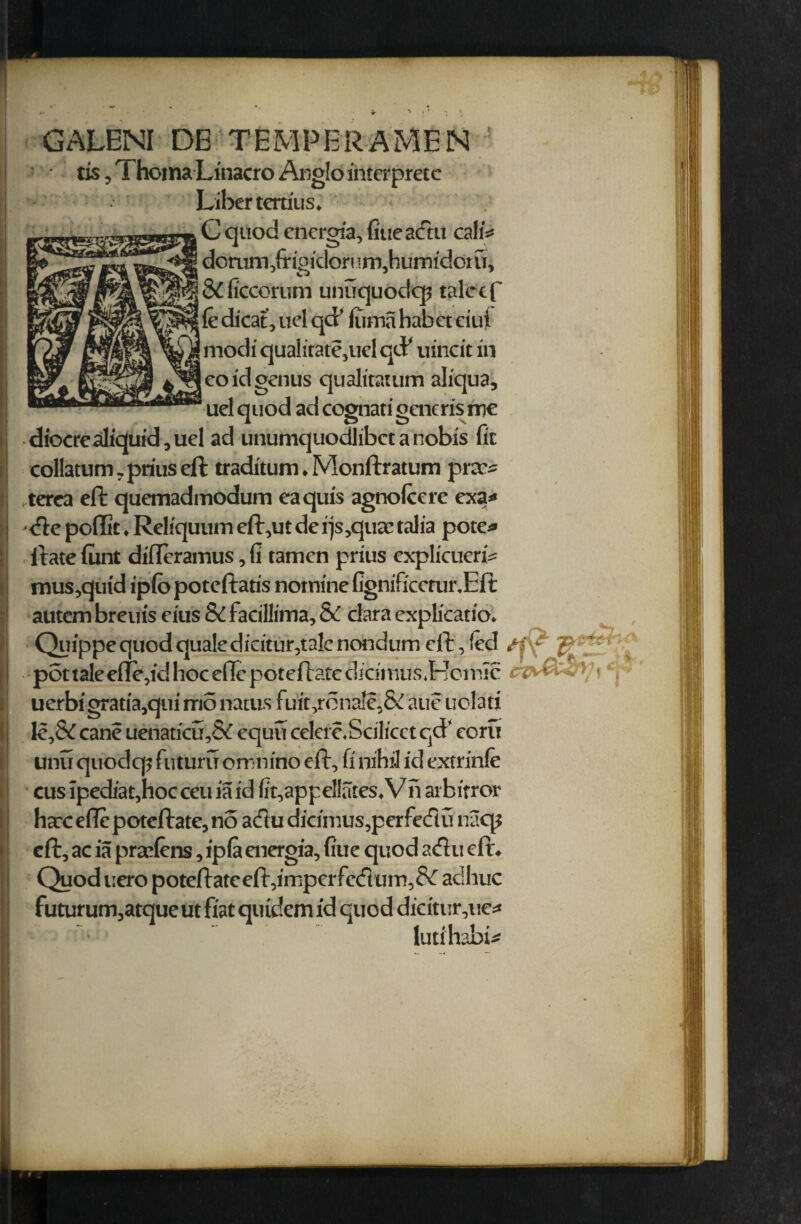 GALENI DE TEMPERAMEN
tis, Thoma Linacro Anglo interprete
Liber tertius.
AC quod energia, siue actu cali⸗
dorum, frigidorum, humidorū,
& siccorum unūquodqꝫ tale eſ
ſe dicat̄, uel qđ ſūmā habet eiuſ
modi qualitatē, uel qđ uincit in
eo id genus qualitatum aliqua,
uel quod ad cognati generis me
diocre aliquid, uel ad unumquodlibet a nobis ſit
collatum, prius eſt traditum. Monſtratum præ⸗
terea eſt quemadmodum ea quis agnoſcere exa⸗
cte poſſit. Reliquum eſt, ut de ijs, quæ talia pote⸗
ſtate ſunt diſſeramus, ſi tamen prius explicueri⸗
mus, quid ipſo poteſtatis nomine ſignificetur. Eſt
autem breuis eius & facillima, & clara explicatio.
Quippe quod quale dicitur, tale nondum eſt, ſed
pōt tale eſſe, id hoc eſſe poteſtate dicimus. Homīē
uerbi gratia, qui mō natus fuit, rōnalē, & auē uolati
lē, & canē uenaticū, & equū celerē. Scilicet qđ eorū
unū quodqꝫ futurū omnino eſt, ſi nihil id extrinſe
cus īpediat, hoc ceu iā id ſit, appellātes. Vñ arbitror
hæc eſſe poteſtate, nō actu dicimus, perfectū nāqꝫ
eſt, ac iā præſens, ipſa energia, ſiue quod actu eſt.
Quod uero poteſtate eſt, imperfectum, & adhuc
futurum, atque ut fiat quidem id quod dicitur, ue⸗
luti habi⸗